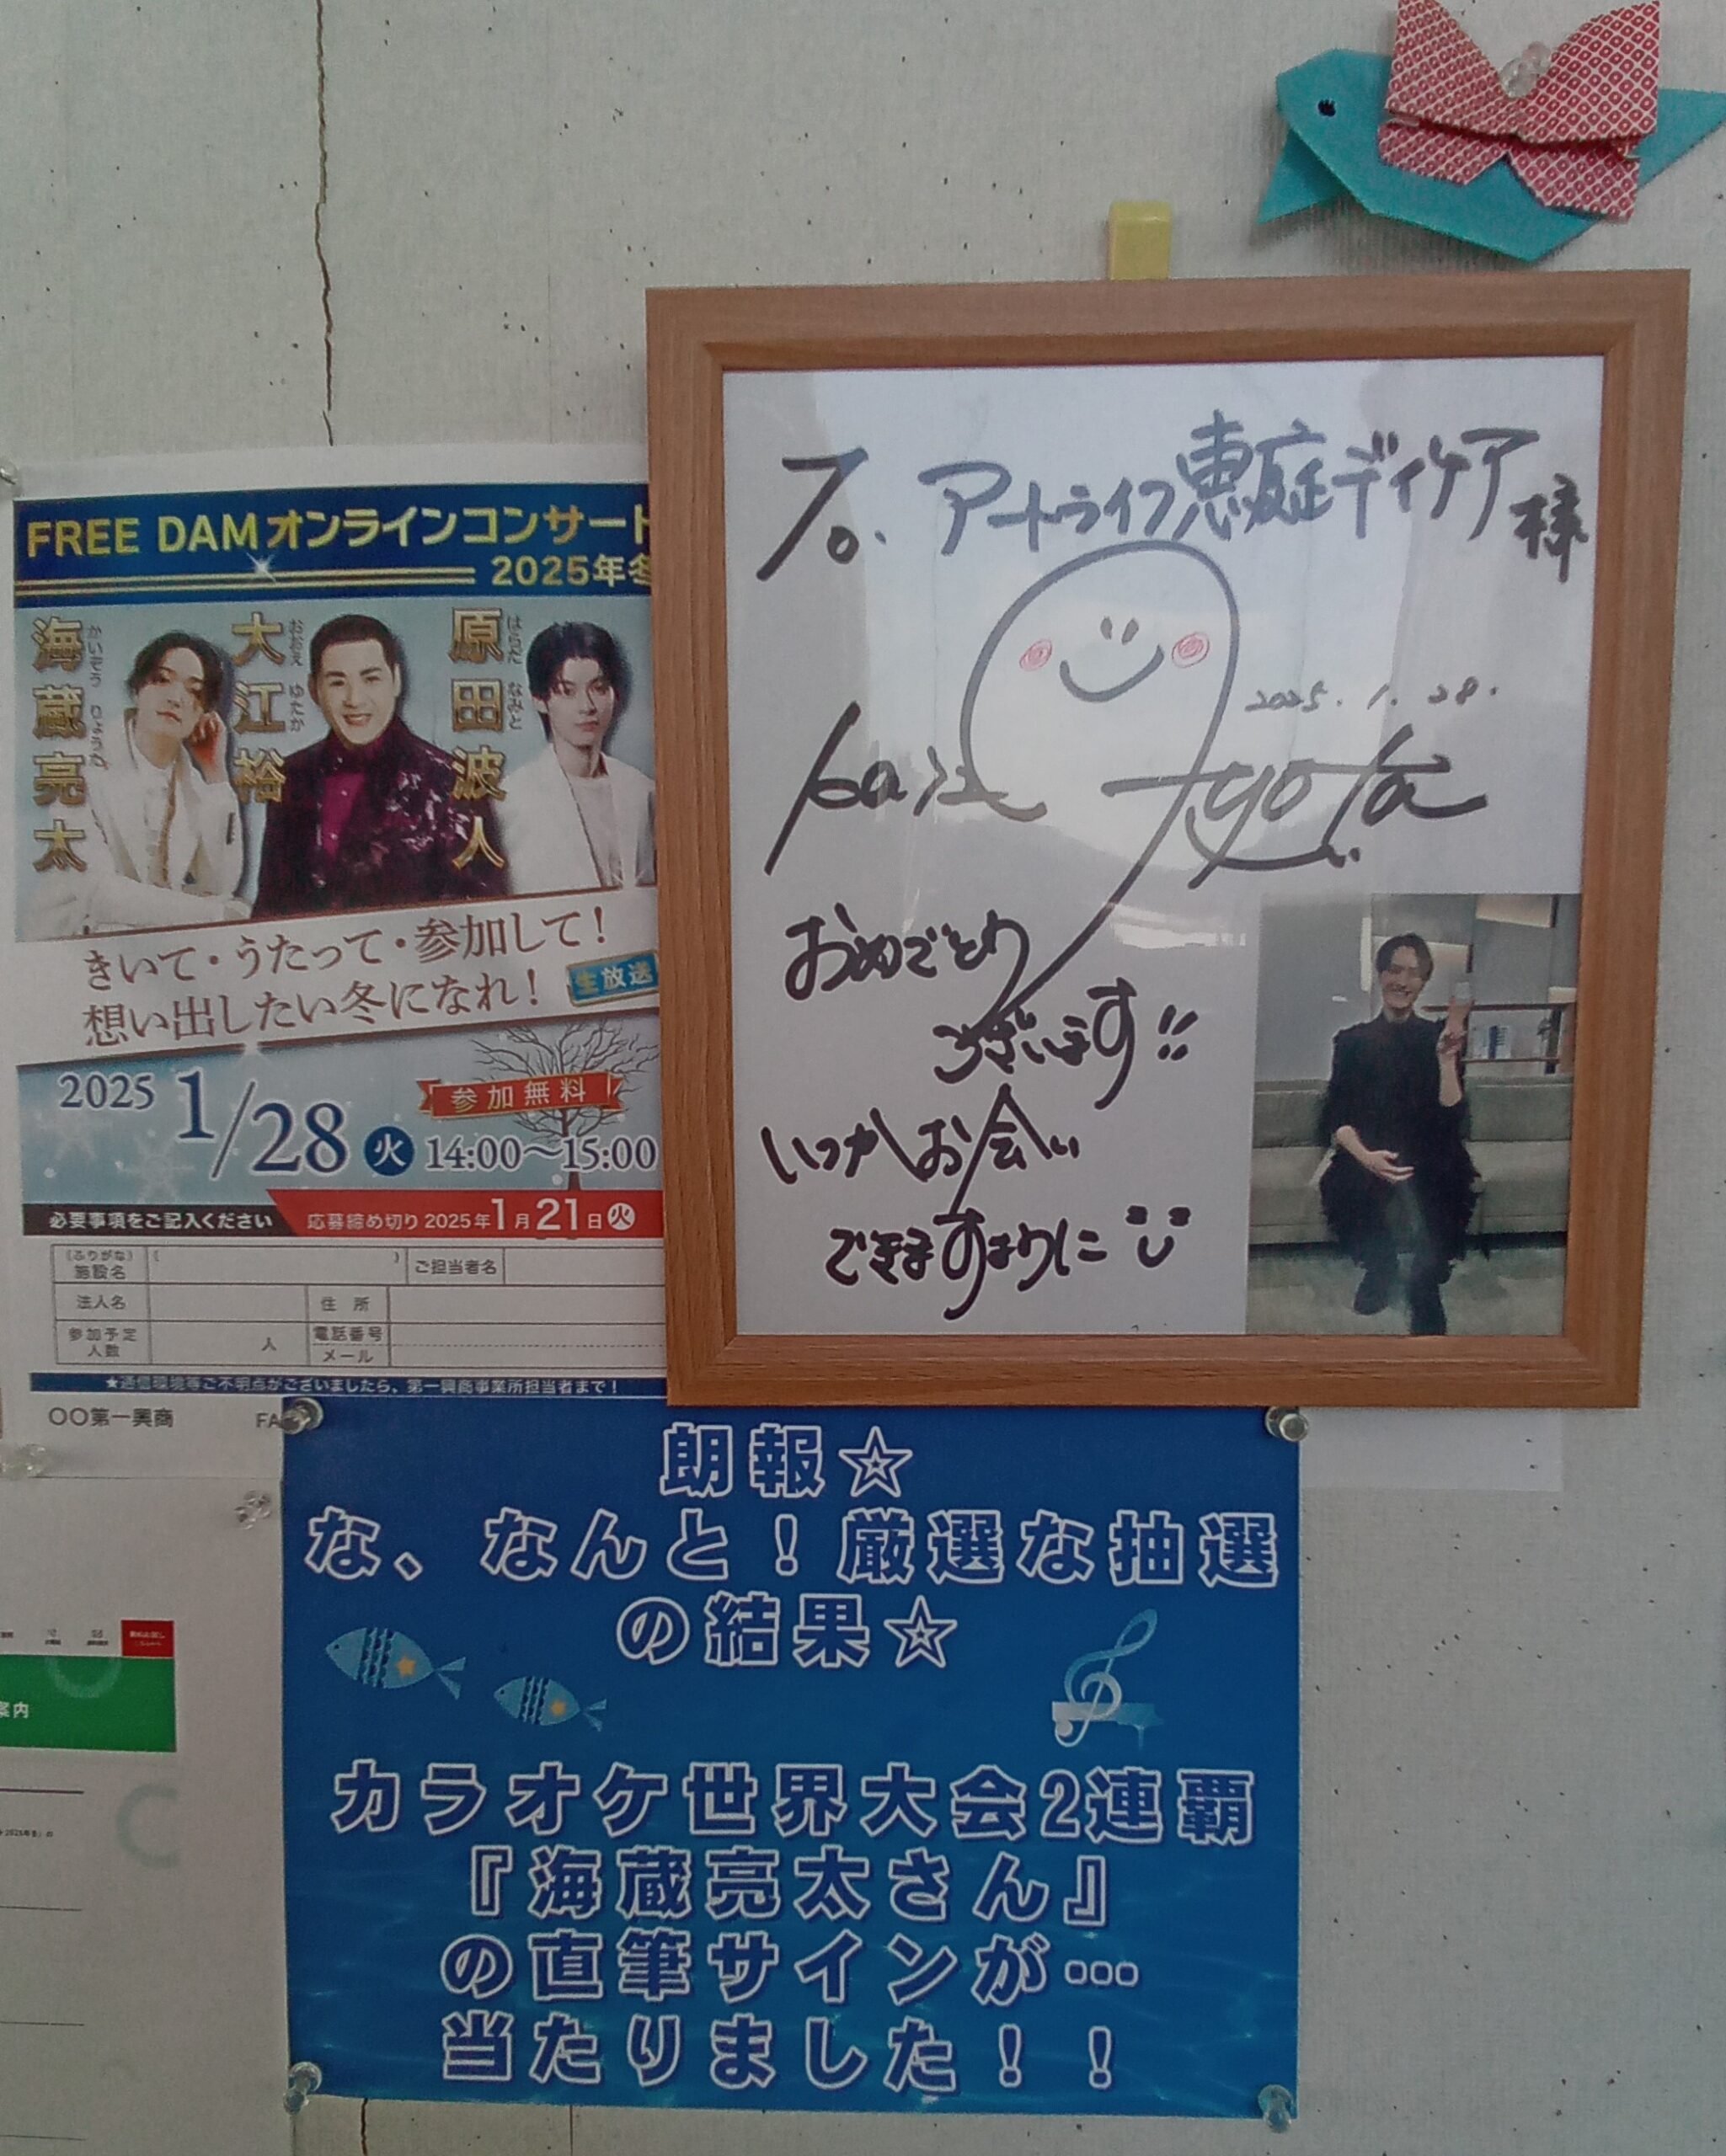 FREE DAMオンラインコンサート
2025年冬
海蔵亮太
かいぞう りょうた
大江裕
おおえ ゆたか
原田波人
はらだ なみと
きいて・うたって・参加して！
想い出したい冬になれ！
生放送
2025 1/28 火 14:00〜15:00
参加無料
必要事項をご記入ください
応募締め切り 2025年1月21日火
(ふりがな)
施設名
( )
ご担当者名
法人名
住 所
参加予定
人数
人
電話番号
メール
★通信環境等ご不明点がございましたら、第一興商事業所担当者まで！
○○第一興商
FA
To. アートライフ恵庭デイケア様
2025.1.28.
kaizo ryota
おめでとう
ございます!!
いつかお会い
できますように
朗報☆
な、なんと！厳選な抽選
の結果☆
カラオケ世界大会2連覇
『海蔵亮太さん』
の直筆サインが…
当たりました！！
案内